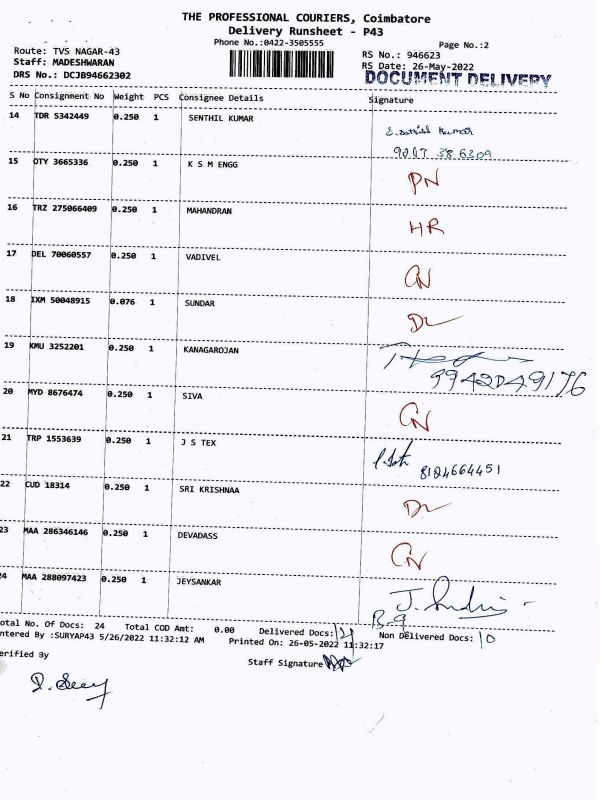 THE PROFESSIONAL COURIERS, Coimbatore
Delivery Runsheet - P43
Phone No.:0422-3505555
Page No.:2
Route: TVS NAGAR-43
RS No.: 946623
Staff: MADESHWARAN
RS Date: 26-May-2022
DRS No.: DCJB94662302
DOCUMENT DELIVERY
S No Consignment No Weight PCS Consignee Details Signature
14 TDR 5342449 0.250 1 SENTHIL KUMAR
15 OTY 3665336 0.250 1 K S M ENGG PN
16 TRZ 275066409 0.250 1 MAHANDRAN HR
17 DEL 70060557 0.250 1 VADIVEL CN
18 IXM 50048915 0.076 1 SUNDAR DL
19 KMU 3252201 0.250 1 KANAGAROJAN
9942049176
20 MYD 8676474 0.250 1 SIVA CN
21 TRP 1553639 0.250 1 J S TEX
8124664451
22 CUD 18314 0.250 1 SRI KRISHNAA DL
23 MAA 286346146 0.250 1 DEVADASS CN
24 MAA 288097423 0.250 1 JEYSANKAR
otal No. Of Docs: 24 Total COD Amt: 0.00 Delivered Docs: Non Delivered Docs: 10
ntered By :SURYAP43 5/26/2022 11:32:12 AM Printed On: 26-05-2022 11:32:17
erified By Staff Signature